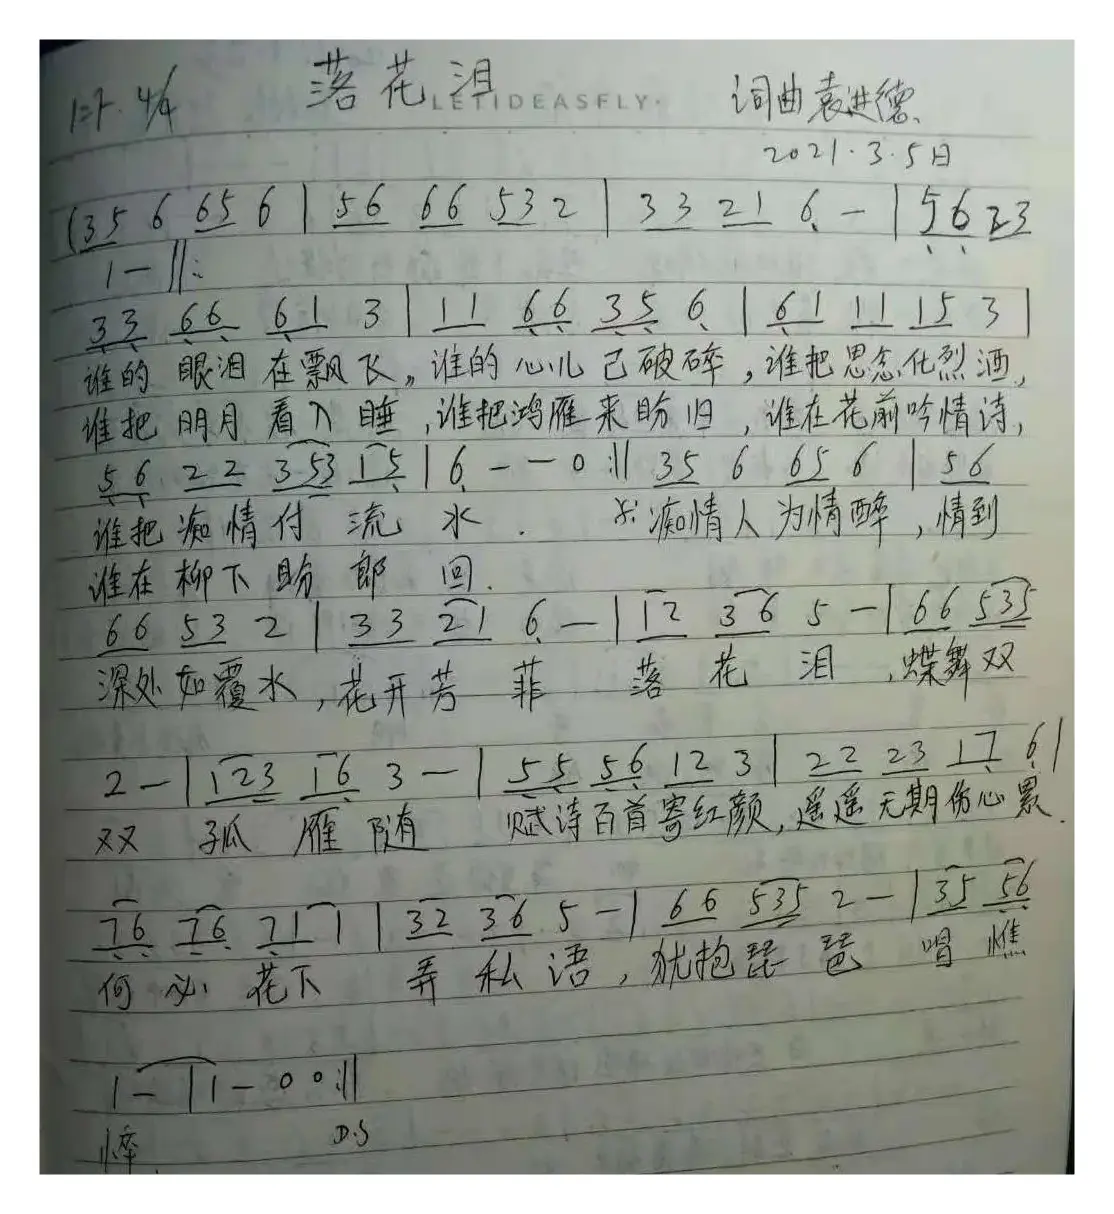 落花泪
LETIDEASFLY
1=F 4/4 词曲袁进德
2021.3.5日
(35 6 65 6 | 56 66 53 2 | 33 21 6 - | 56 23
1 - ||:
33 66 61 3 | 11 66 35 6 | 61 11 15 3 |
谁的眼泪在飘飞,谁的心儿已破碎,谁把思念化烈酒,
谁把明月看入睡,谁把鸿雁来盼归,谁在花前吟情诗,
56 22 353 15 | 6 - - 0 :|| 35 6 65 6 | 56
谁把痴情付流水. 痴情人为情醉,情到
谁在柳下盼郎回.
66 53 2 | 33 21 6 - | 12 36 5 - | 66 535
深处如覆水,花开芳菲落花泪,蝶舞双
2 - | 123 16 3 - | 55 56 12 3 | 22 23 17 6 |
双孤雁随 赋诗百首寄红颜,遥遥无期伤心累.
76 76 71 1 | 32 36 5 - | 66 535 2 - | 35 56
何必花下弄私语,犹抱琵琶唱憔
1 - | 1 - 0 0 :||
悴. D.S